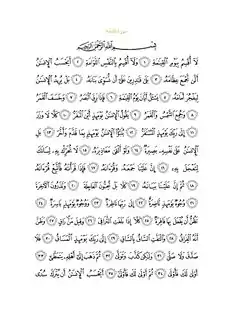 سورة القيامة
بسم الله الرحمن الرحيم
لا أقسم بيوم القيمة ١ ولا أقسم بالنفس اللوامة ٢ أيحسب الإنسن
ألن نجمع عظامه ٣ بلى قدرين على أن نسوي بنانه ٤ بل يريد الإنسن
ليفجر أمامه ٥ يسئل أيان يوم القيمة ٦ فإذا برق البصر ٧ وخسف القمر
٨ وجمع الشمس والقمر ٩ يقول الإنسن يومئذ أين المفر ١٠ كلا لا وزر
١١ إلى ربك يومئذ المستقر ١٢ ينبؤا الإنسن يومئذ بما قدم وأخر ١٣ بل
الإنسن على نفسه بصيرة ١٤ ولو ألقى معاذيره ١٥ لا تحرك به لسانك
لتعجل به ١٦ إن علينا جمعه وقرءانه ١٧ فإذا قرأنه فاتبع قرءانه
١٨ ثم إن علينا بيانه ١٩ كلا بل تحبون العاجلة ٢٠ وتذرون الآخرة
٢١ وجوه يومئذ ناضرة ٢٢ إلى ربها ناظرة ٢٣ ووجوه يومئذ باسرة ٢٤
تظن أن يفعل بها فاقرة ٢٥ كلا إذا بلغت التراقي ٢٦ وقيل من راق ٢٧ وظن
أنه الفراق ٢٨ والتفت الساق بالساق ٢٩ إلى ربك يومئذ المساق ٣٠ فلا
صدق ولا صلى ٣١ ولكن كذب وتولى ٣٢ ثم ذهب إلى أهله يتمطى ٣٣
أولى لك فأولى ٣٤ ثم أولى لك فأولى ٣٥ أيحسب الإنسن أن يترك سدى